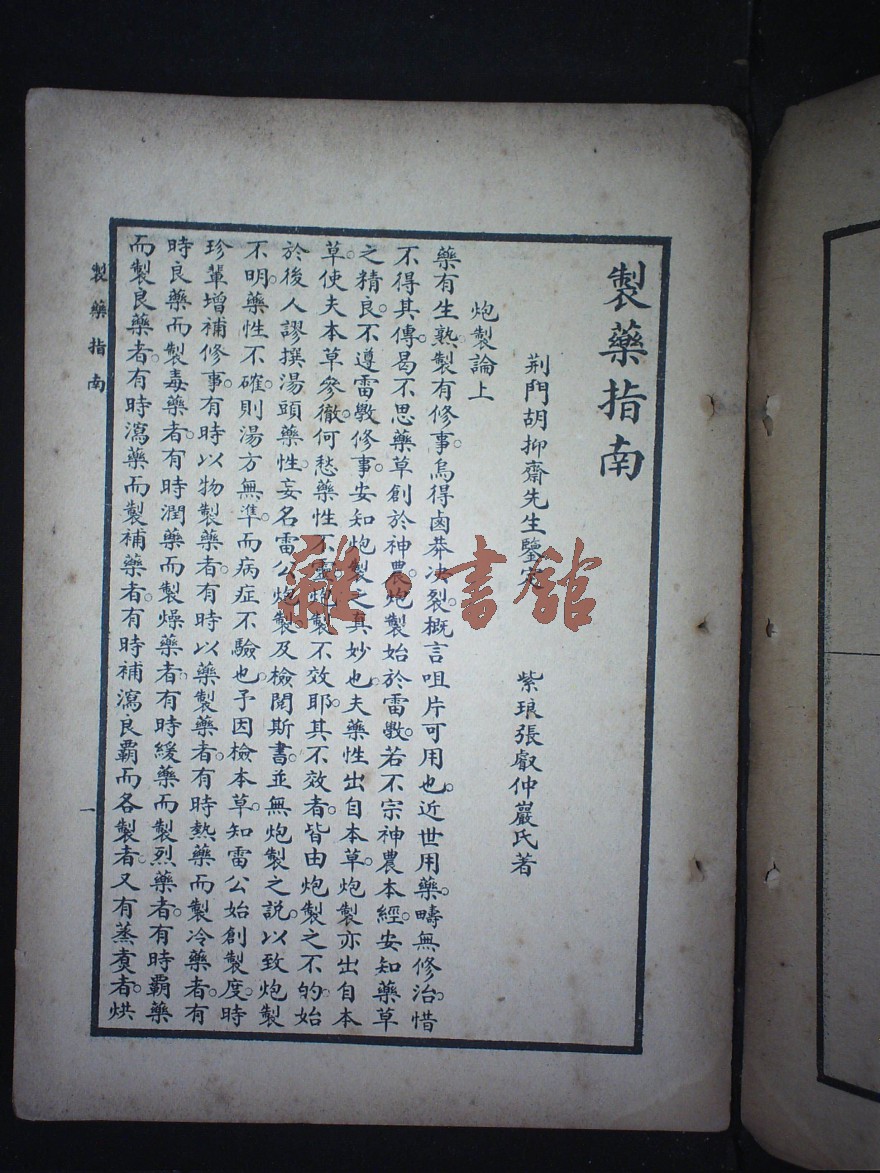 製藥指南
荆門胡抑齋先生鑒定　紫琅張叡仲巖氏著
炮製論上
藥有生熟。製有修事。烏得鹵莽決裂。概言咀片可用也。近世用藥。疇無修治。惜
不得其傳。曷不思藥草創於神農。炮製始於雷斆。若不宗神農本經。安知藥草
之精良。不遵雷斆修事。安知炮製之真妙也。夫藥性出自本草。炮製亦出自本
草。使夫本草參徹。何愁藥性不靈。炮製不效耶。其不效者。皆由炮製之不的。始
於後人謬撰湯頭藥性。妄名雷公炮製。及檢閱斯書。並無炮製之說。以致炮製
不明。藥性不確。則湯方無準。而病症不驗也。予因檢本草。知雷公始創製度。時
珍輩增補修事。有時以物製藥者。有時以藥製藥者。有時熱藥而製冷藥者。有
時良藥而製毒藥者。有時潤藥而製燥藥者。有時緩藥而製烈藥者。有時霸藥
而製良藥者。有時瀉藥而製補藥者。有時補瀉良霸而各製者。又有蒸煑者。烘
製藥指南
一
雜·書館